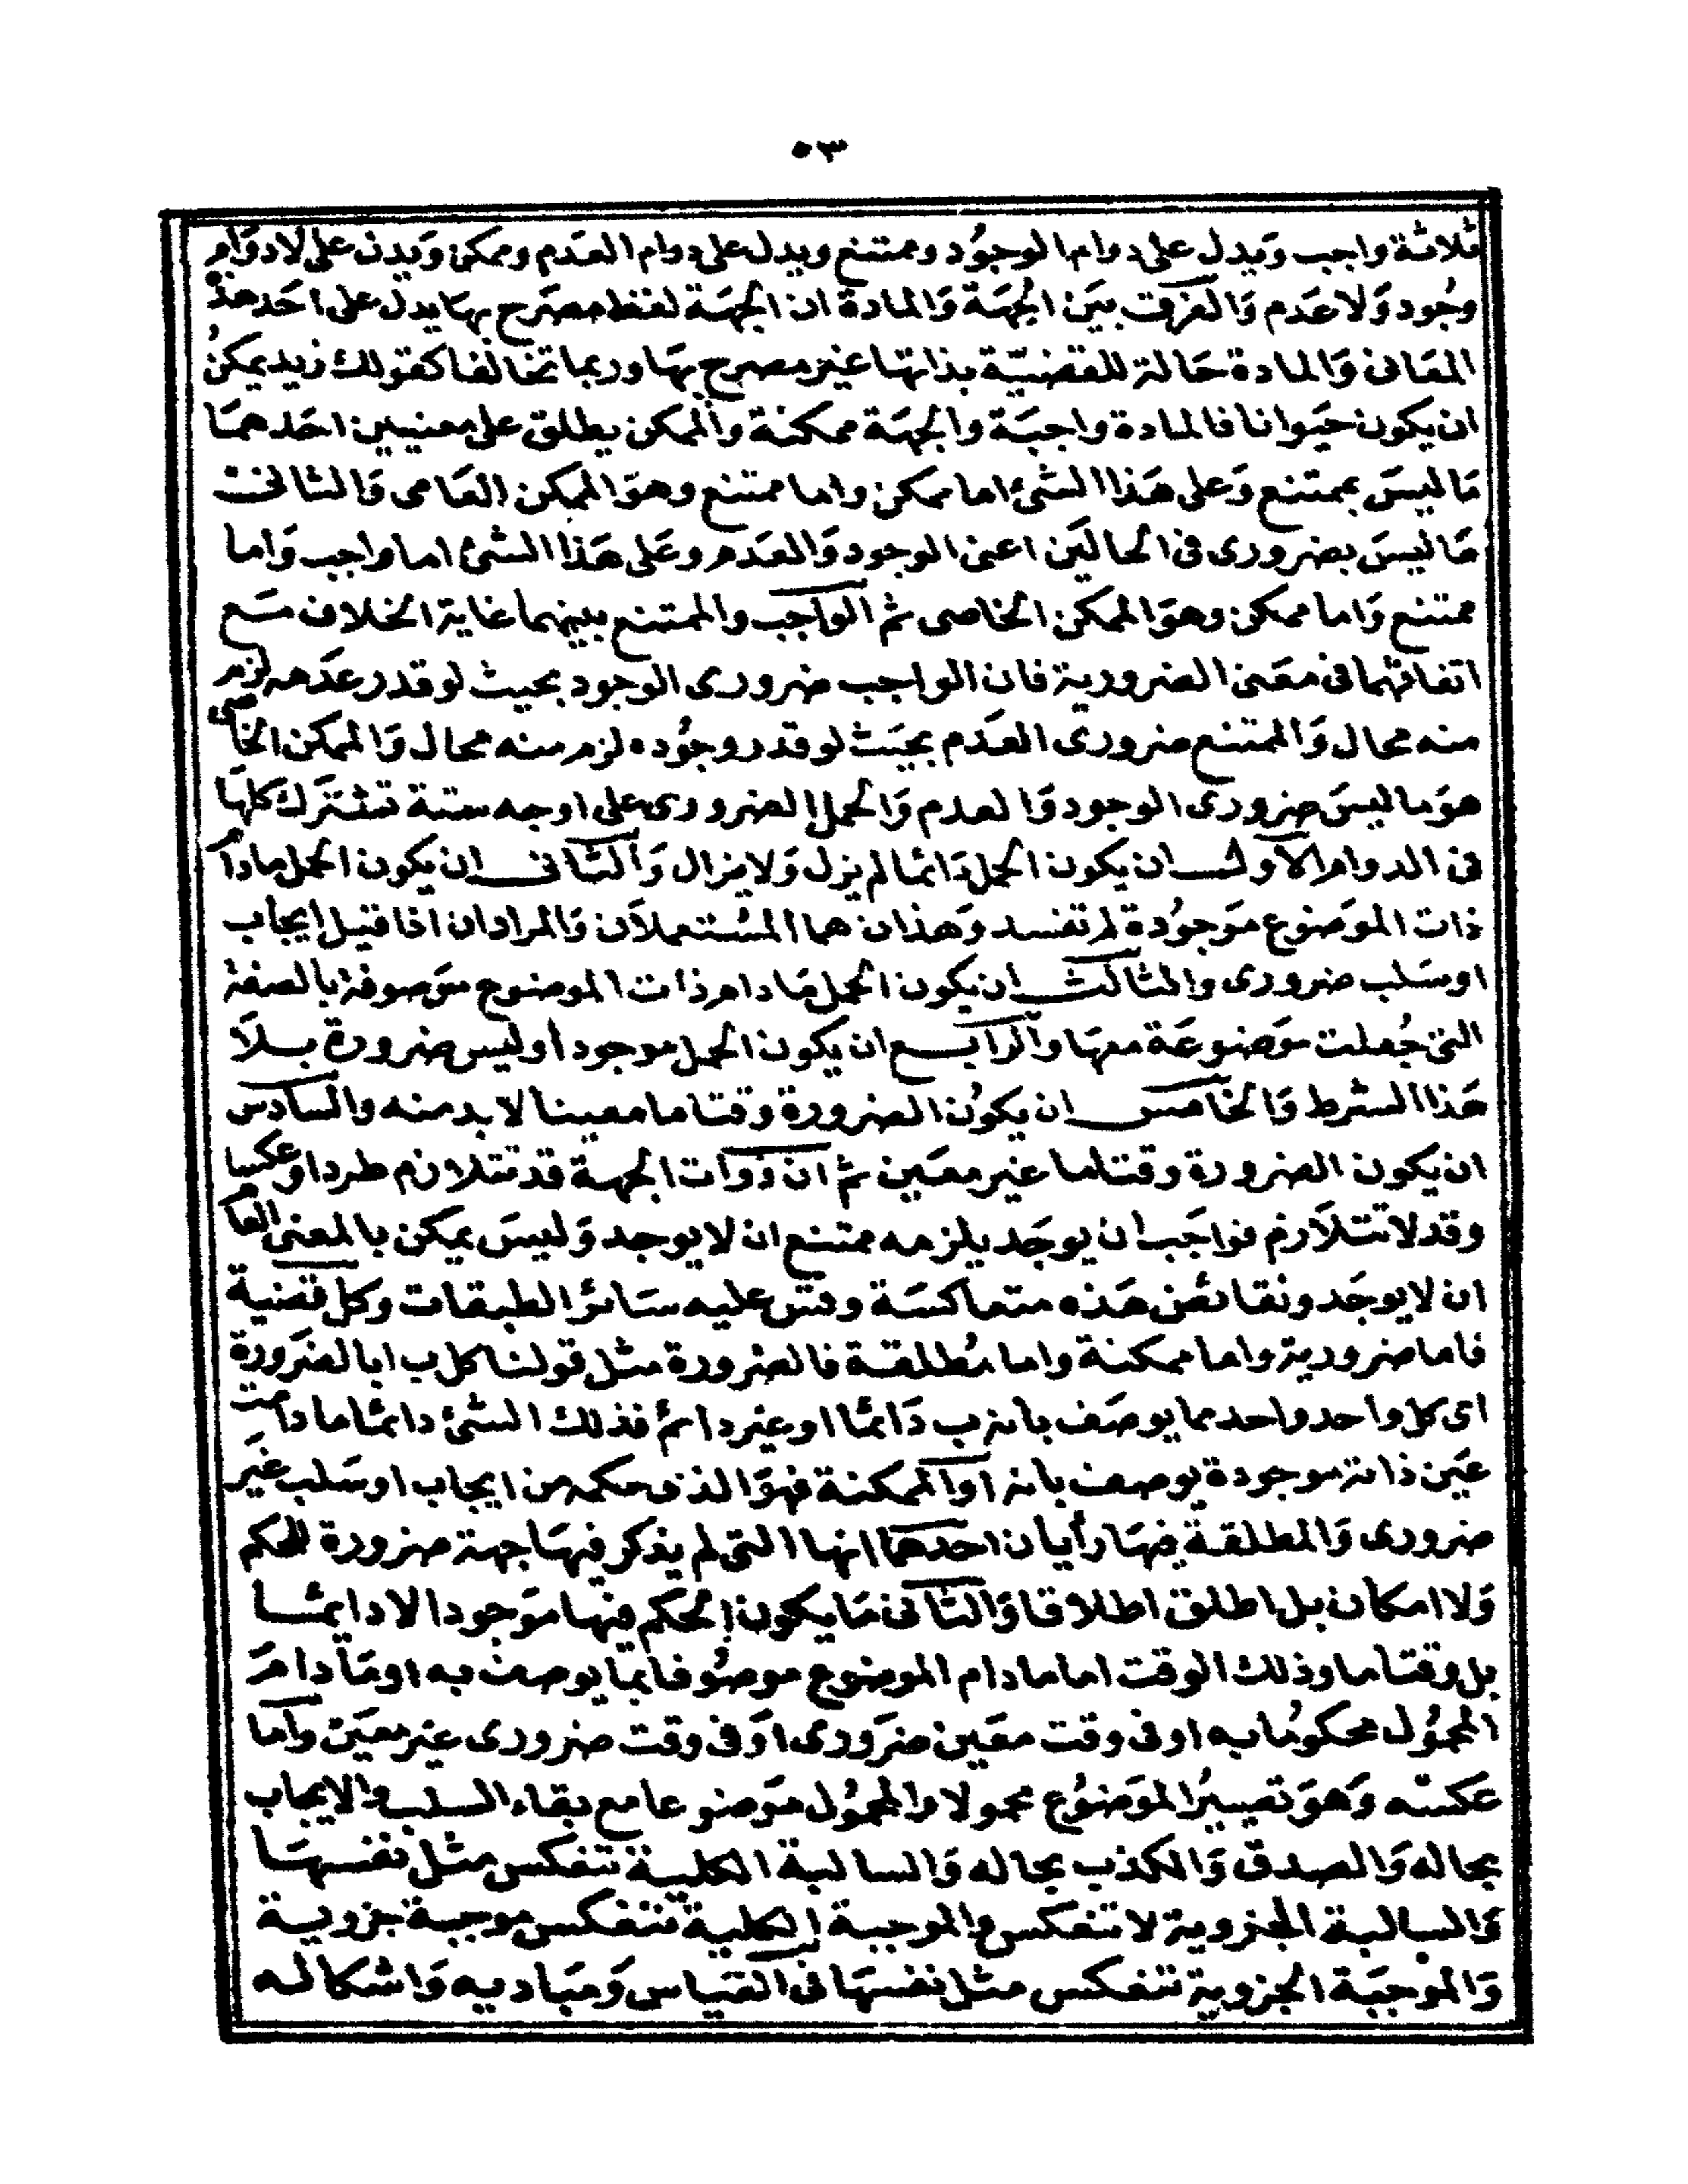 ٥٣
ثلاثة واجب وَيدل على دوام الوجوُد وممتنع ويدل على دوام العَدم وممكن وَيدل على لا دوَام
وجُود وَلا عَدم وَالفَرق بيَن الجُهَة وَالمادة ان الجهَة لفظ مصَرح بهَا يدل على احَد هذه
المعَانى وَالمادة حَالة للقضيّة بذاتها غير مصرح بهَا وربما تخالفا كقولك زيد يمكنُ
ان يكون حيَوانا فالمادة واجبَة والجهَة ممكنة والممكن يطلق على معنيين احَدهمَا
مَا ليسَ بممتنع وَعلى هَذا الشئ اما ممكن واما ممتنع وهوَ الممكن العَامى وَالثانى
مَا ليسَ بضرورى فى الحاليَن اعنى الوجود وَالعَدم وعَلى هَذا الشئ اما واجب وَاما
ممتنع وَاما ممكن وهوَ الممكن الخاصى ثم الواجب والممتنع بينهما غاية الخلاف مَع
اتفاقهما فى معَنى الضرورية فان الواجب ضرورى الوجود بحيث لو قدر عدَمه لزم
منه محال وَالممتنع ضرورى العَدم بحيَث لو قدر وجوُده لزم منه محال وَالممكن الخاصى
هوَ ما ليسَ ضرورى الوجود وَالعدم وَالحمل الضرورى على اوجه ستة تشترَك كلهَا
فى الدوام الاَول ان يكون الحمل دَائما لم يزل وَلا يزال وَالثانى ان يكون الحمل مادام
ذات الموَضوع موَجوُدة لم تفسد وَهذان هما المُستعملاَن وَالمرادان اذا قيل ايجاب
او سَلب ضرورى والثالث ان يكون الحمل مَا دام ذات الموضوع موَصوفة بالصفة
التى جُعلت موَضوعَة معهَا والرابع ان يكون الحمل موجودا وليس ضرورة بلاَ
هَذا الشرط وَالخامس ان يكوُن الضرورة وقتا ما معينا لا بد منه والسَادس
ان يكون الضرورة وقتا ما غير معيَن ثم ان ذوات الجهة قد تتلازم طردا وعكسا
وقد لا تتلاَزم فواجَب ان يوجَد يلزمه ممتنع ان لا يوجد وَليسَ يمكن بالمعنى العام
ان لا يوجَد ونقائض هَذه متعاكسَة وقس عليه سَائر الطبقات وكل قضية
فاما ضرورية واما ممكنة واما مُطلقة فالضرورة مثل قولنا كل ب ا بالضَرورة
اى كل واحد واحد مما يوصَف بانه ب دَائما او غير دائم فذلك الشئ دائما ما دامت
عيَن ذاته موجودة يوصف بانه ا وَالممكنة فهوَ الذى حكمه من ايجاب او سَلب غيَر
ضرورى وَالمطلقة فيهَا رأيان احَدهما انها التى لم يذكر فيهَا جهة ضرورة للحكم
وَلا امكان بل اطلق اطلاقا وَالثانى مَا يكون الحكم فيها موَجودا لا دائما
بل وقتا ما وذلك الوقت اما ما دام الموضوع موصوُفا بما يوصف به او مَا دامَ
المحموُل محكومُا به او فى وقت معَين ضرَورى اوَ فى وقت ضرورى غير معيَن وَاما
عكسْه وَهوَ تصييرُ الموَضوُع محمولا والمحموُل موَضوعا مع بقاء السلب والايجاب
بحاله وَالصدق وَالكذب بحاله وَالسالبة الكلية تنعكس مثل نفسهَا
وَالسالبة الجزوية لا تنعكس والموجبة الكلية تنعكس موجبة جزوية
وَالموْجبَة الجزوية تنعكس مثل نفسهَا فى القيَاس وَمبَاديه وَاشكاله